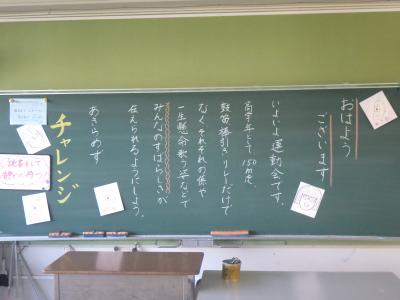 おはよう
ございます
いよいよ運動会です。
高学年として150m走、
鼓笛、棒引き、リレーだけで
なく、それぞれの係や
一生懸命歌う姿などで
みんなのすばらしさが
伝えられるようにしよう。
あきらめず
チャレンジ